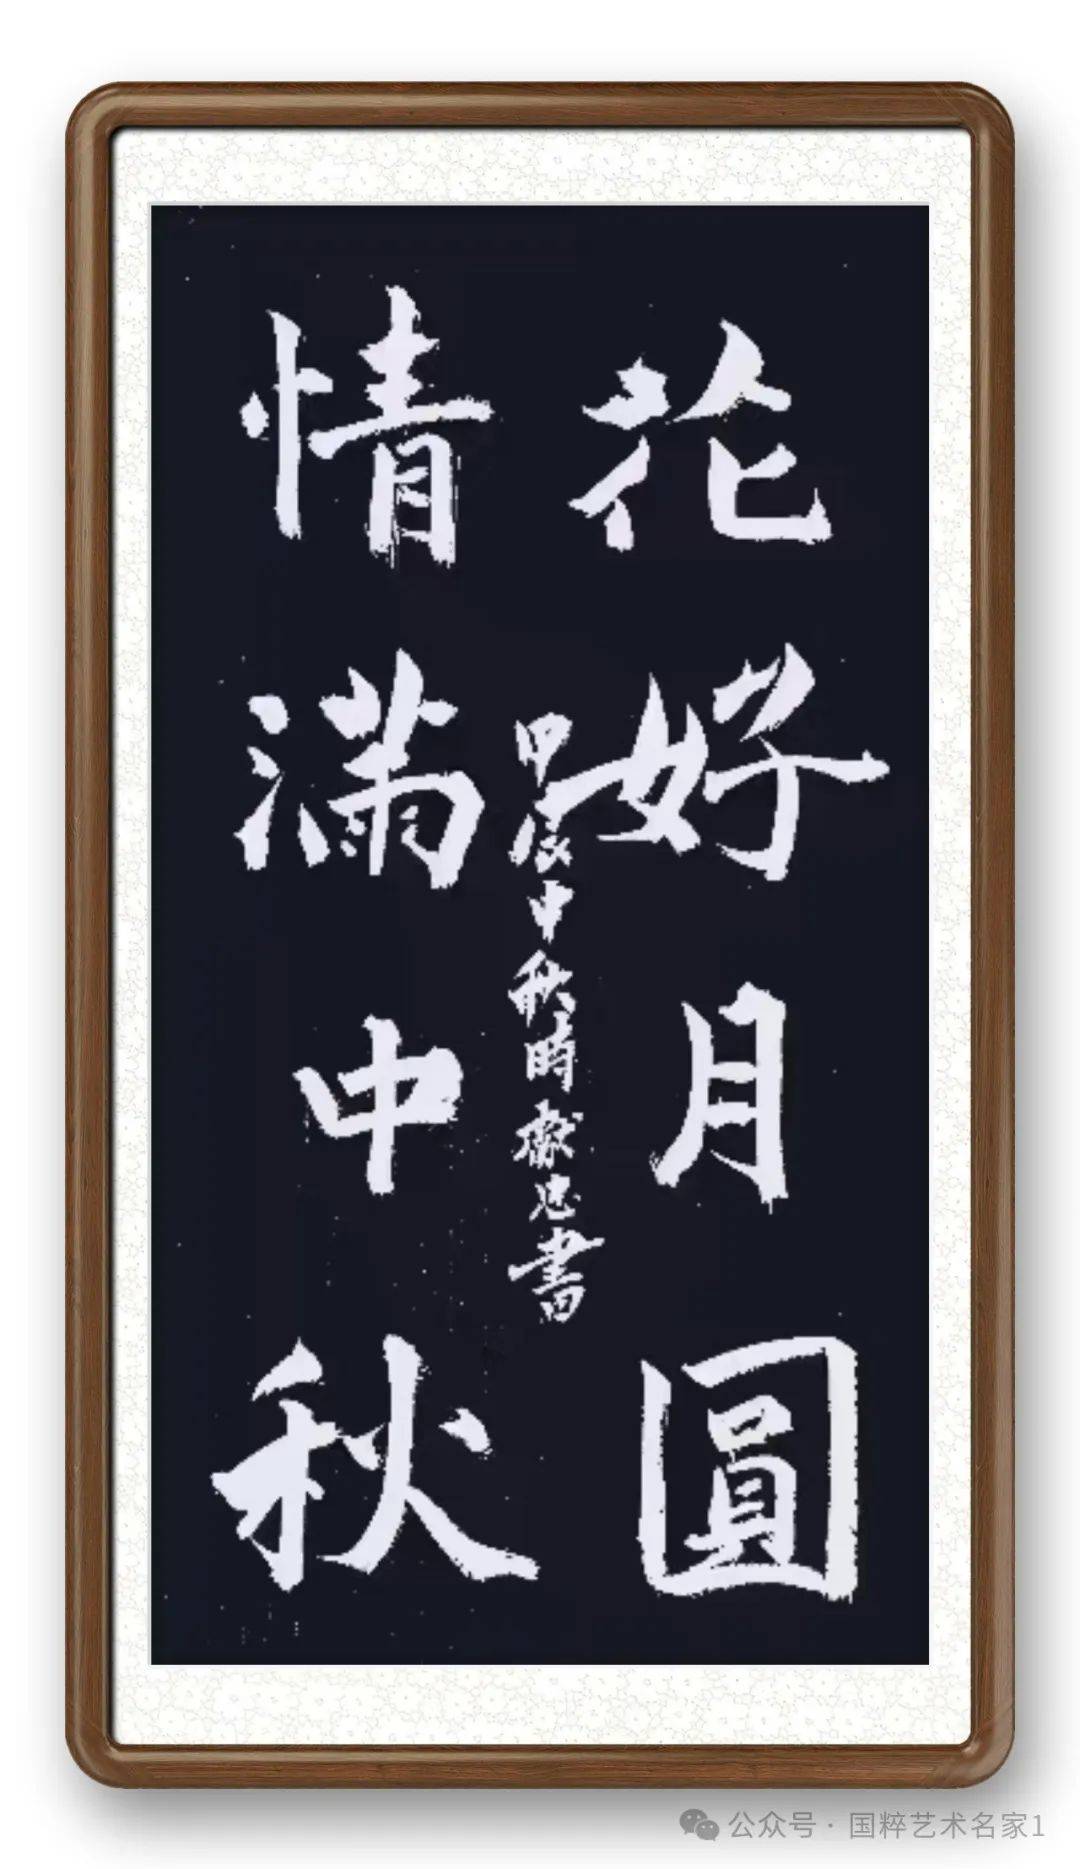 花好月圓
情滿中秋
甲辰中秋時
忠書
公众号 · 国粹艺术名家1